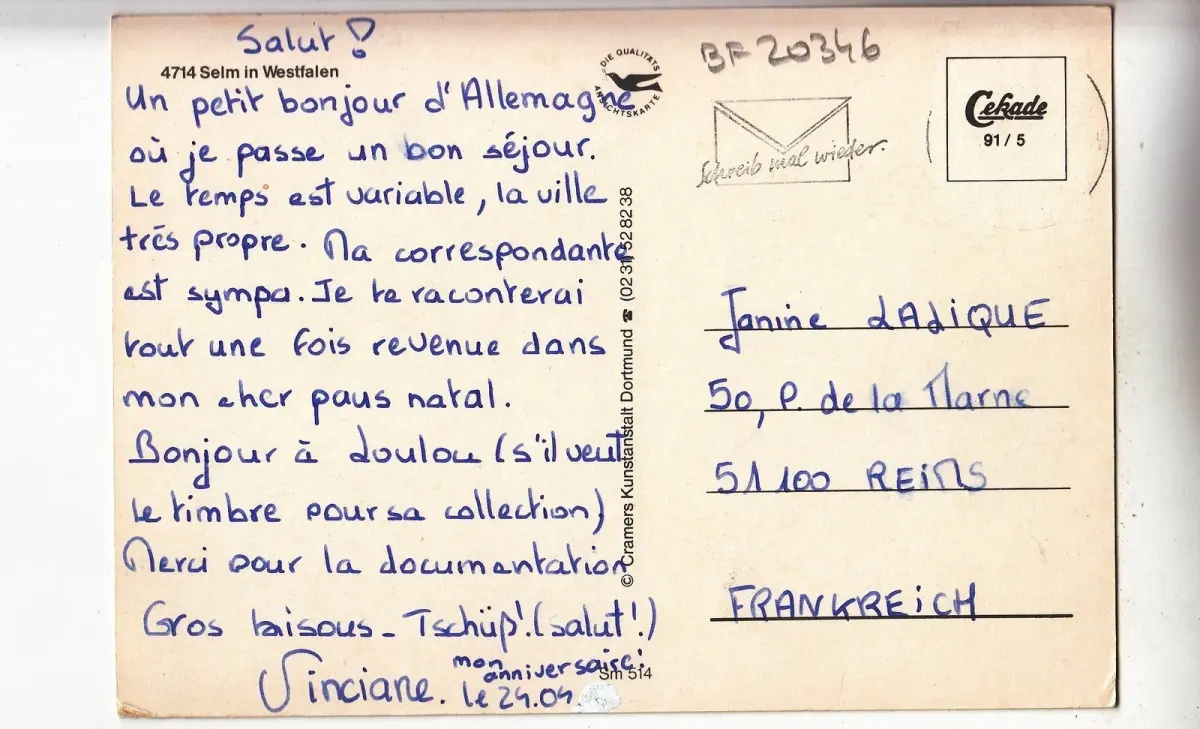 Salut !
4714 Selm in Westfalen
Un petit bonjour d'Allemagne
où je passe un bon séjour.
Le temps est variable, la ville
très propre. Ma correspondante
est sympa. Je te raconterai
tout une fois revenue dans
mon cher pays natal.
Bonjour à Loulou (s'il veut
le timbre pour sa collection)
Merci pour la documentation
Gros baisous - Tschüß! (salut!)
mon
anniversaire!
le 24.04
Sm 514
DIE QUALITÄTS
ANSICHTSKARTE
© Cramers Kunstanstalt Dortmund ☎ (0231) 528238
BF 20346
Schreib mal wieder.
Cekade
91/5
Janine LADIQUE
50, P. de la Marne
51100 REIMS
FRANKREICH